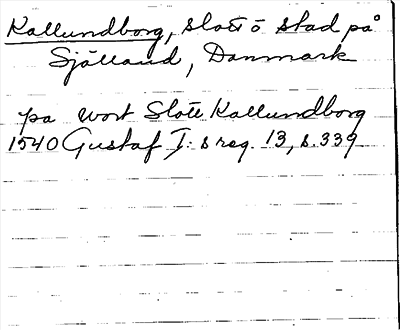 Kallundborg, slott o stad på
Själland, Danmark
pa wort Slott Kallundborg
1540 Gustaf I:s reg. 13, s. 339